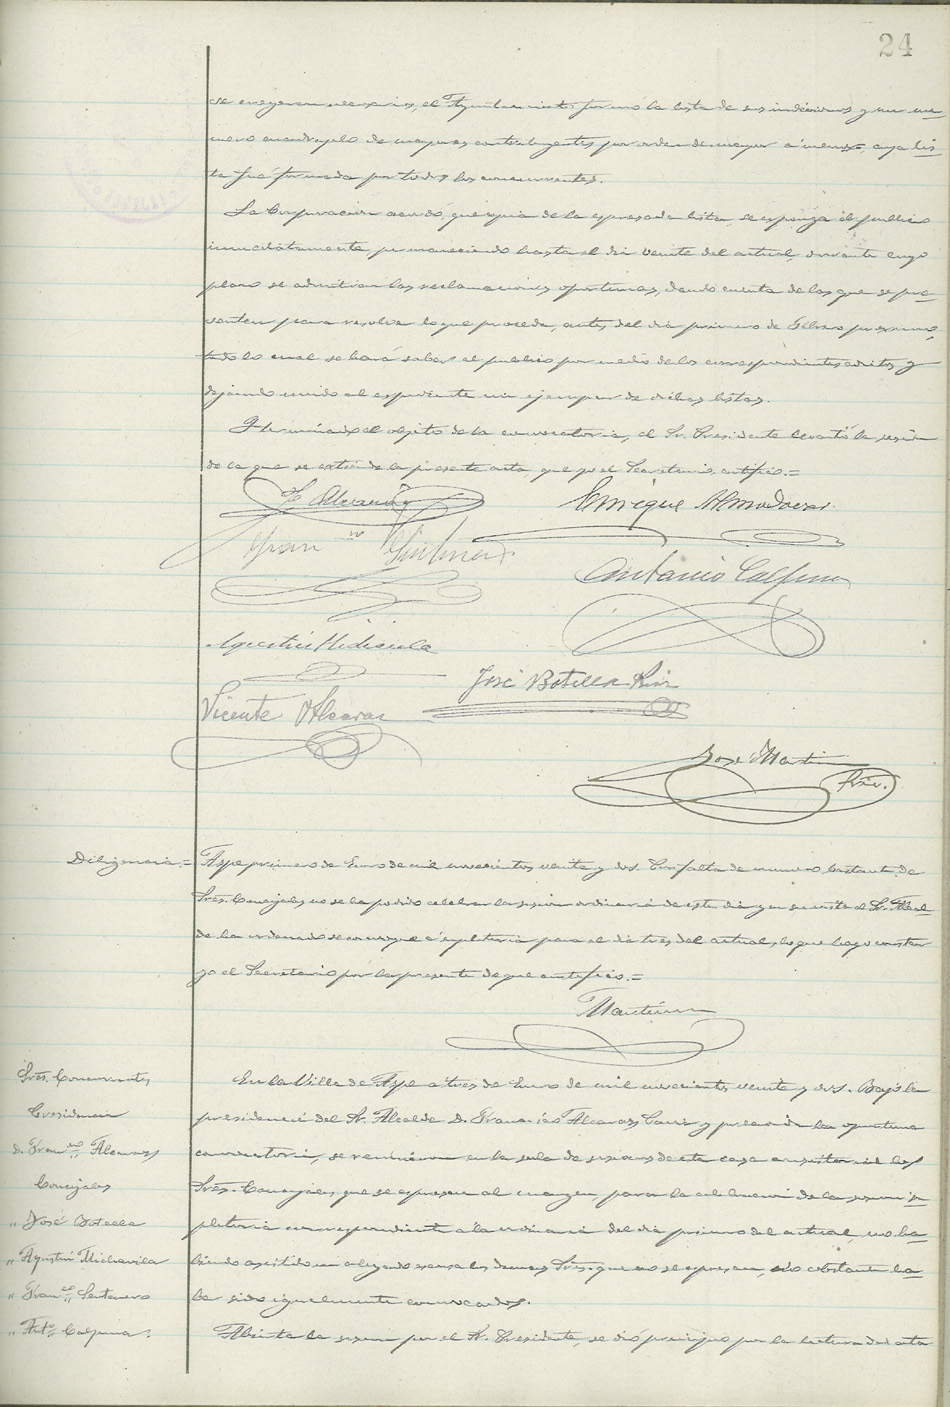 24
se creyeron necesarios, el Ayuntamiento formó la lista de sus individuos y un nú-
mero cuadruplo de mayores contribuyentes por orden de mayor a menor, cuya lis-
ta fué formada por todos los concurrentes.
La Corporación acordó, que copia de la expresada lista se exponga al publico
inmediatamente, permaneciendo hasta el dia veinte del actual, durante cuyo
plazo se admitiran las reclamaciones oportunas, dando cuenta de las que se pre-
senten para resolver lo que proceda, antes del dia primero de Febrero proximo,
todo lo cual se hará saber al publico por medio de los correspondientes edictos y
dejando unido al expediente un ejemplar de dichas listas.
Y terminado el objeto de la convocatoria, el Sr. Presidente levantó la sesión
de la que se extiende la presente acta, que yo el Secretario, certifico.=
F. Alcaraz
Enrique Almodovar
Fran co
Antonio Calpena
Agustín Michavila
José Botella
Vicente Alcaraz
José Martin
Diligencia.=
Aspe primero de Enero de mil novecientos veinte y dos. Por falta de numero bastante de
Sres. Concejales no se ha podido celebrar la sesion ordinaria de este dia y en su vista el Sr. Alcal-
de ha ordenado se convoque a supletoria para el dia tres del actual, lo que hago constar
yo el Secretario por la presente de que certifico.=
Sres. Concurrentes
Presidencia
D. Fran co Alcaraz
Concejales
" José Botella
" Agustín Michavila
" Fran co
" Ant o Calpena.
En la Villa de Aspe a tres de Enero de mil novecientos veinte y dos. Bajo la
presidencia del Sr. Alcalde D. Francisco Alcaraz y precedida la oportuna
convocatoria, se reunieron en la sala de sesiones de esta casa consistorial los
Sres. Concejales, que se expresan al margen, para la celebracion de la sesion su-
pletoria correspondiente a la ordinaria del dia primero del actual, no ha-
biendo asistido ni alegado excusa los demas Sres. que no se expresan, no obstante ha-
ber sido igualmente convocados.
Abierta la sesion por el Sr. Presidente, se dió principio por la lectura del acta